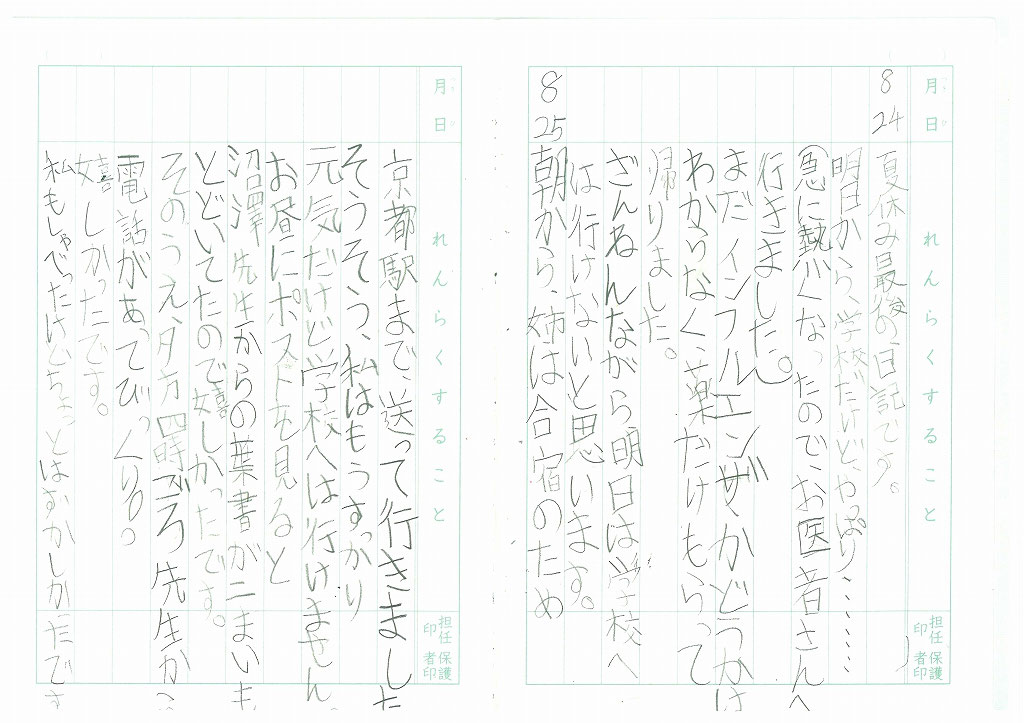 月 日
れんらくすること
担任印 保護者印
8 24
夏休み最後の日記です。
明日から、学校だけど、やっぱり……
急に熱くなったので、お医者さんへ
行きました。
まだインフルエンザかどうかは
わからなく、薬だけもらって
帰りました。
ざんねんながら明日は学校へ
は行けないと思います。
8 25
朝から、姉は合宿のため
月 日
れんらくすること
担任印 保護者印
京都駅まで、送って行きました
そうそう、私はもうすっかり
元気だけど学校へは行けません。
お昼にポストを見ると
沼澤先生からの葉書が二まいも
とどいてたので嬉しかったです。
そのうえ、夕方四時ごろ先生から
電話があってびっくり。
嬉しかったです。
私もしゃべったけどちょっとはずかしかったです